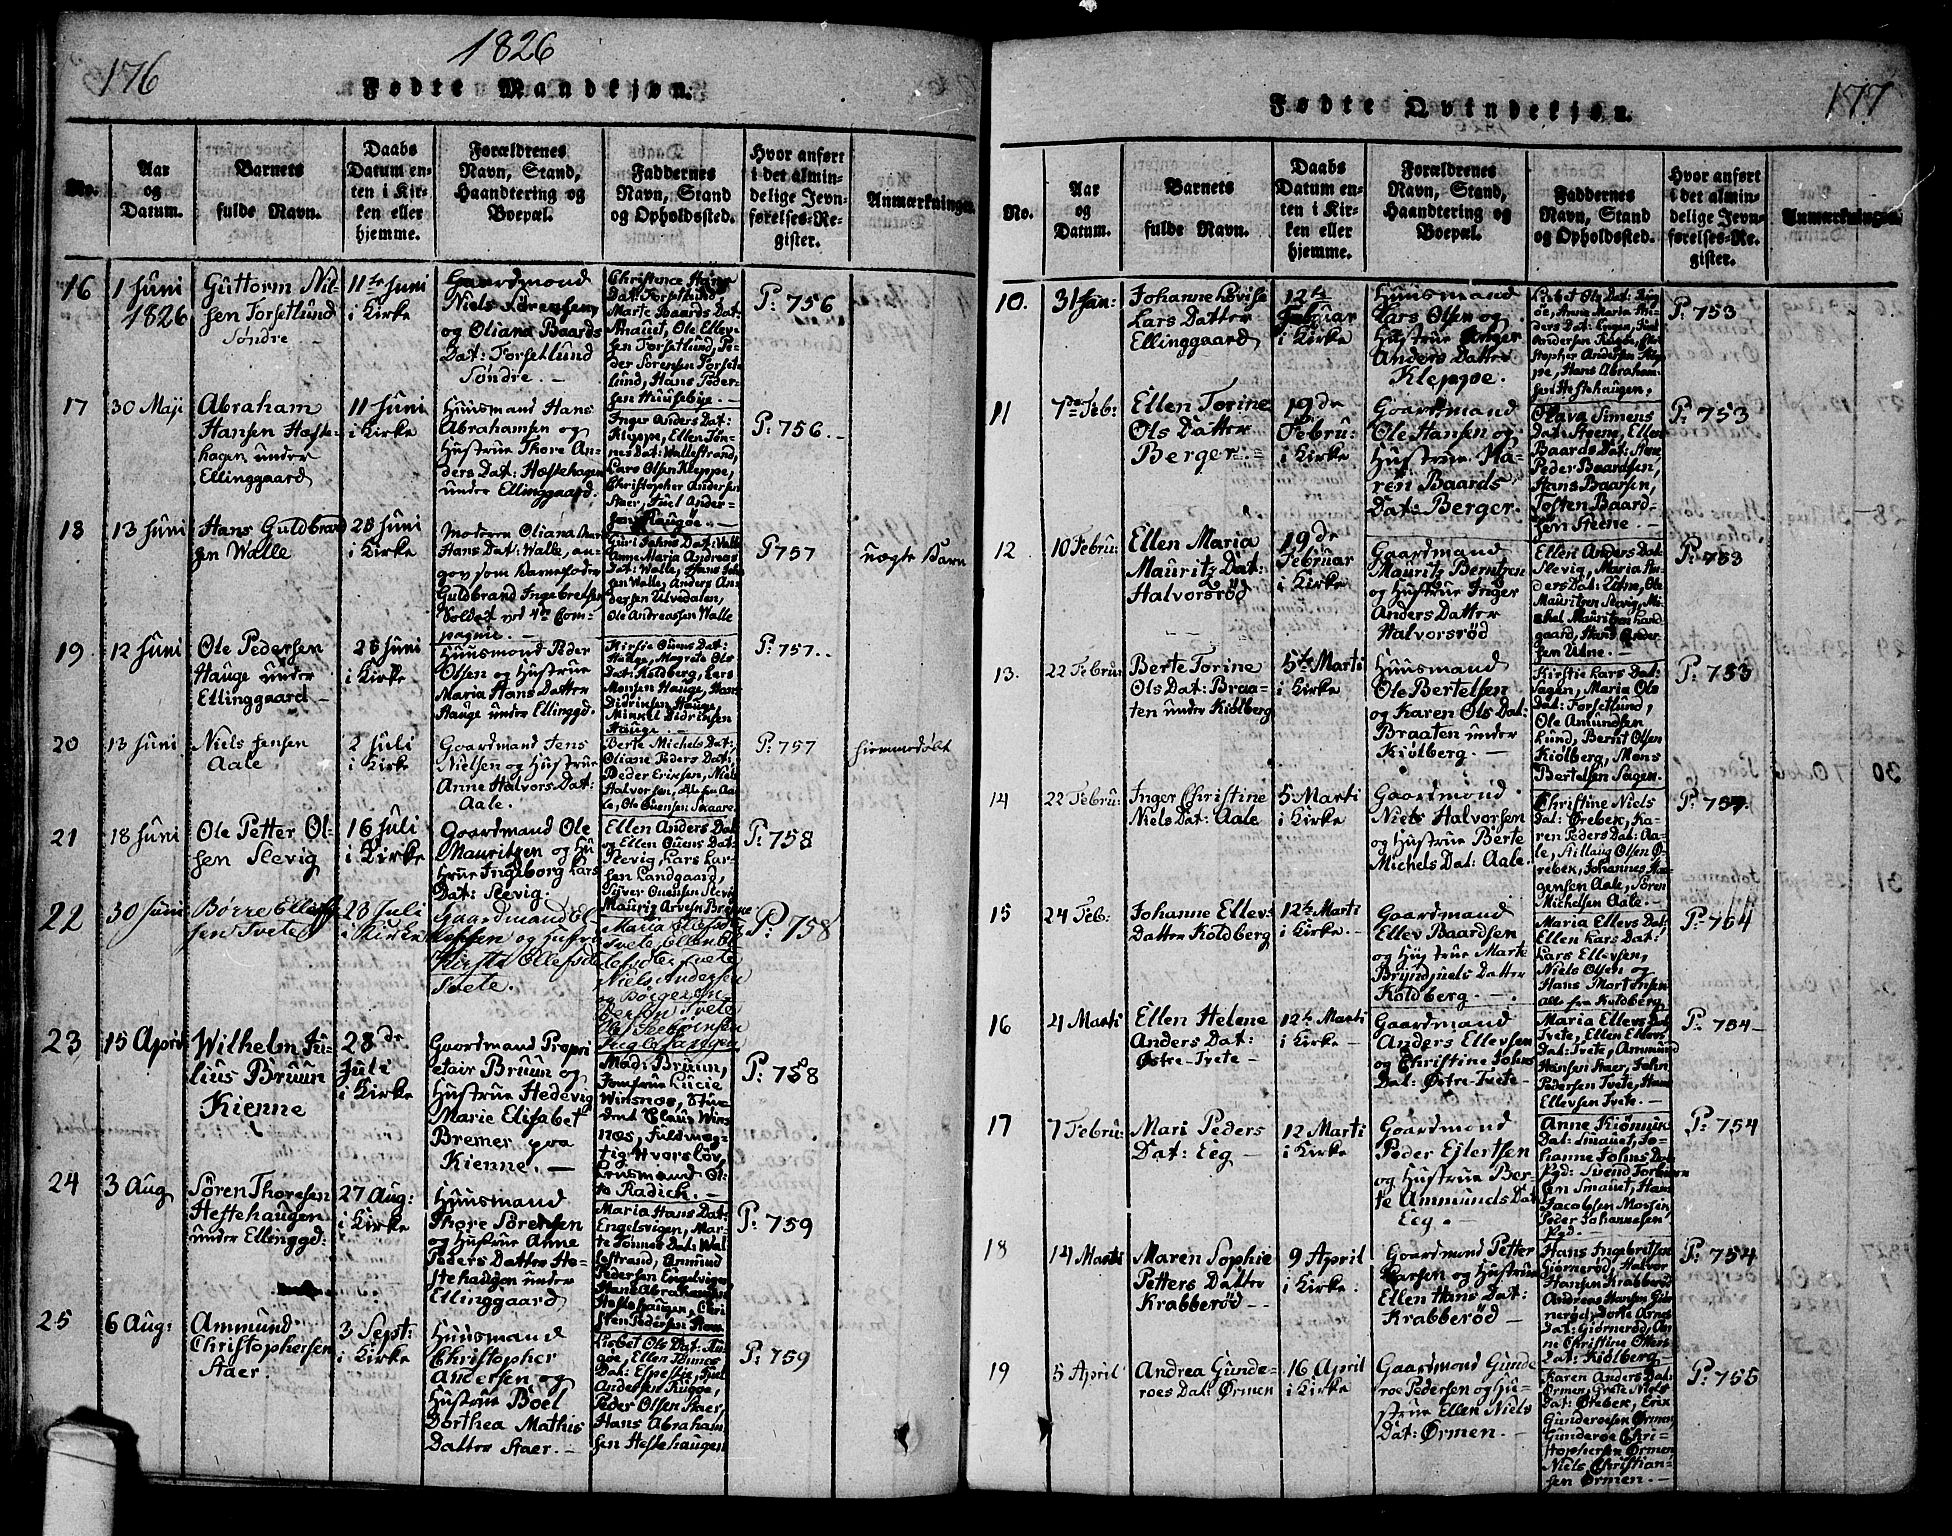 176
1826
Fødte Mandkjøn.
No.
Aar
og
Datum.
Barnets
fulde Navn.
Daabs
Datum en-
ten i Kir-
ken eller
hjemme.
Forældrenes
Navn, Stand,
Haandtering og
Boepæl.
Faddernes
Navn, Stand
og Opholdssted.
Hvor anført
i det almin-
delige Jevn-
førelses-Re-
gister.
Anmærkninger.
16
1 Juni
1826
Guttorm Nil-
sen Forsetlund
Søndre
11te Juni
i Kirke
Gaardmand
Niels Sørensen
og Oliana Baards
Dat: Forsetlund
Søndre. —
Dat: Forsetlund
Marte Baards Dat:
Ole Ellev-
sen Forsetlund, Pe-
der Sørensen Forset-
lund, Hans Peder-
sen Huusebye. —
P: 756
17
30 Maji
Abraham
Hansen Hæste-
hagen under
Ellinggaard
11 Juni
i Kirke
Huusmand Hans
Abrahamsen og
Hustrue Thore An-
ders Dat: Hæstehagen
under Ellinggaard.
Inger Anders Dat:
Kleppe, Ellen Tøn-
nes Dat: Wallestrand,
Lars Olsen Kleppe,
Christopher Andersen
Staer, Juel Ander-
sen Raugøe. —
P: 756. —
18
13 Juni
Hans Guldbrand-
sen Walle
28 Juni
i Kirke
Moderen Oliana
Hans Dat: Walle, an-
gov som Barnefader
Guldbrand Ingebretsen
Soldat ved 4de Com-
pagnie. —
Guri Jahns Dat: Walle
Anne Maria Andreas
Dat: Walle, Hans Joh
sen Walle, Anders An-
dersen Ulvedalen,
Ole Andreassen Walle
P: 757
uægte Barn
19
12 Juni
Ole Pedersen
Hauge under
Ellinggaard —
28 Juni
i Kirke
Huusmand Peder
Olsen og Hustrue
Maria Hans Datter
Hauge under Ellinggd.
Kirstie Ouens Dat:
Hauge, Magrete Ols
Dat: Koldberg, Lars
Monsen Hauge, Hans
Didrinsen Hauge
Minnel Didrinsen
Hauge. —
P: 757. -
20
13 Juni
Niels Jensen
Aale
2 Juli
i Kirke
Gaardmand Jens
Nielsen og Hustrue
Anne Halvors Dat:
Aale.
Berte Michels Dat:
Oliane Peders Dat:
Peder Eriksen, Niels
Halvorsen, alle fra Aa-
le, Ole Ouensen Skaare
P: 757
hiemmedøbt
21
18 Juni
Ole Petter Ol-
sen Slevig
16 Juli
i Kirke
Gaardmand Ole
Mauritsen og Hu
strue Ingeborg Lars
Dat: Slevig.
Ellen Anders Dat:
og Ellen Ouens Dat:
Slevig, Lars Lar-
sen Landgaard,
Syver Ouensen Slevig
Mauritz Arvesen Brenne
P: 758
22
30 Juni
Børre Ellef-
sen Tvete
23 Juli
i Kirke
Gaardmand El-
lefsen og Hustru
Kirstie Ellefsdt
Tvete.
Maria Ellefsdt
Tvete, Ellen El-
lefsdter Tvete
Niels Andersen
og Børger An-
dersen Tvete
Ole Seebørnsen
Fuglefangen
P: 758
23
15 April
Wilhelm Ju-
lius Bruun
Kienne
28de
Juli
i Kirke
Gaardmand Propri
etair Bruun og
Hustrue Hedevig
Marie Elisabet
Bremer, paa
Kienne. —
Mad: Bruun,
Jomfrue Lucie
Winsnos, Stu-
dent Claus Wins
nos, Fuldmæg-
tig Hvorsløv,
Lensmand Ol-
to Radich. —
P: 758
24
3 Aug
Søren Thoresen
Hestehaugen
under Ellenggd:
27 Aug:
i Kirke
Huusmand
Thore Sørensen
og Hustrue Anne
Peders Datter He-
stehaugen under
Ellinggaard
Maria Hans Dat:
Engelsvigen, Mar-
te Tønnes Dat: Wal
lestrand, Ammund
Pedersen Engelvigen
Hans Abrahamsen
Hestehaugen, Chri
sten Pedersen
P: 759
25
6 Aug:
Ammund
Christophersen
Staer.
3 Sept:
i Kirke
Huusmand
Christopher
Andersen og
Hustrue Boel
Dorthea Mathis
Datter Staer. —
Lisbet Ols Dat: Rau-
gøe, Ellen Tønnes
Dat: Espelie, Juel
Andersen Rugge,
Peder Olsen Staer,
Hans Abraham
sen Hestehaugen
P: 759
177
Fødte Qvindekjøn.
No.
Aar
og
Datum.
Barnets
fulde Navn.
Daabs
Datum en-
ten i Kir-
ken eller
hjemme.
Forældrenes
Navn, Stand,
Haandtering og
Boepæl.
Faddernes
Navn, Stand
og Opholdssted.
Hvor anført
i det almin-
delige Jevn-
førelses-Re-
gister.
Anmærkninger.
10.
31 Jan:
Johanne Lovise
Lars Datter
Ellinggaard
12te
Februar
i Kirke
Huusmand
Lars Olsen og
Hustrue Inger
Anders Datter
Kleppe.
Lisbet Ols Dat: Rau-
øe, Anne Maria An-
ders Dat: Engen, Juel
Andersen Raugøe, Chri
stopher Andersen Klep-
pe, Hans Abraham-
sen Hestehaugen.
P: 753
11
7de Feb:
Ellen Torine
Ols Datter
Berger. -
19de
Febru:
i Kirke
Gaardmand
Ole Hansen og
Hustrue Ka-
ren Baards
Dat: Berger.
Olava Simens
Dat: Steene, Ellen
Baards Dat: Stene
Peder Baardsen,
Hans Baarsen,
Tosten Baard-
sen Steene. —
P: 753
12
10 Febru:
Ellen Maria
Maurits Dat:
Halvorsrød
19de
Februar
i Kirke
Gaardmand
Maurits Berntsen
og Hustrue Inger
Anders Datter
Halvorsrød
Ellen Anders Dat:
Slevig, Maria An-
ders Dat: Utne, Ole
Mauritzen Slevig, Mi-
chel Mauritzen Land-
gaard, Hans Ander-
sen Utne. —
P: 753
13.
22 Febru:
Berte Torine
Ols Dat: Braa-
ten under Kiølberg
5te Marti
i Kirke
Huusmand
Ole Bertelsen
og Karen Ols Dat:
Braaten under
Kiølberg. —
Kirstie Lars Dat:
Sagen, Maria Ols
Dat: Forsetlund,
Ole Amundsen
Lund, Bernt Olsen
Kiølberg, Mons
Bertelsen Sagen.
P: 753
14
22 Febru:
Inger Christine
Niels Dat: Aale
5 Marti
i Kirke
Gaardmand
Niels Halvorsen
og Hustrue Berte
Michels Dat: Aale.
Christine Niels
Dat: Ørebek, Ka-
ren Peders Dat: Aa-
le, Stillaug Olsen Ø-
rebek, Johannes Haa-
gensen Aale, Søren
Michelsen Aale. —
P: 754.
15
24 Feb:
Johanne Ellevs
Datter Koldberg
12te Marti
i Kirke. —
Gaardmand
Ellev Baardsen
og Hustrue Marte
Bryndjuels Datter
Koldberg. —.
Maria Ellevs Dat:
Ellen Lars Dat:
Lars Ellevsen,
Niels Olsen og
Hans Mortensen
alle fra Koldberg
P: 754
16
4 Marti
Ellen Helene
Anders Dat:
Østre-Tvete —
12te Marti
i Kirke —
Gaardmand
Anders Ellevsen
og Christine Johns
Dat: Østre-Tvete —
Maria Ellevs Dat:
Tvete, Ellen Ellevs
Dat: Tvete, Ammund
Hansen Staer, John
Pedersen Tvete, Hans
Ellevsen Tvete. —
P: 754 —
17
7 Febru:
Mari Peders
Dat: Eeg —
12 Marti
i Kirke
Gaardmand
Peder Ejlertsen
og Hustrue Ber-
te Ammunds Dat:
Eeg. —
Anne Kiønnius
Dat: Smauet, Jo-
hanne Johns Dat:
Pgd: Svend Torbiørn
sen Smauet, Hans
Jacobsen Mossen,
Peder Johannesen
Pgd. —
P: 754
18
14 Marti
Maren Sophie
Petters Datter
Krabberød -
9 April
i Kirke
Gaardmand Petter
Larsen og Hustrue
Ellen Hans Dat:
Krabberød —
Hans Ingebritsen
Giørnerød, Halvor
Hansen Krabberød
Andreas Hansen Giør
nerød, Dorte Arnes
Dat: Giørnerød, An
ne Christine Olters
Dat: Kiølberg —
P: 754
19
5 April
Andrea Gunde-
roes Dat: Ørmen
16 April
i Kirke
Gaardmand Gunde
roe Pedersen og Hu-
strue Ellen Niels
Dat: Ørmen. —
Karen Anders Dat:
Ørmen, Grete Niels
Dat: Ørebek, Erik
Gunderoesen Ørmen
Gunderoe Chri-
stophersen Ørmen
Niels Christian-
sen Ørmen. —
P: 755